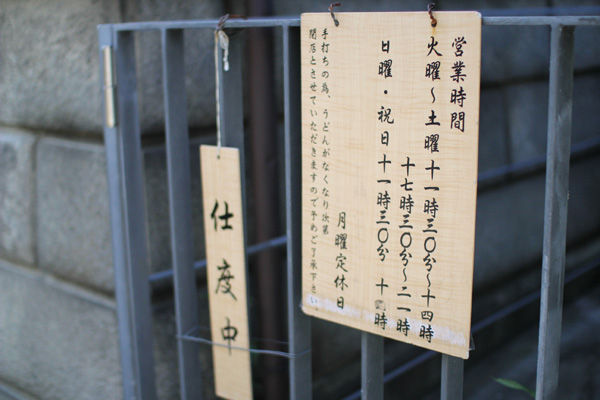 営業時間
火曜～土曜 十一時三〇分～十四時
十七時三〇分～二一時
日曜・祝日 十一時三〇分 十 時
月曜定休日
手打ちの為、うどんがなくなり次第
閉店とさせていただきますので予めご了承下さい
仕度中